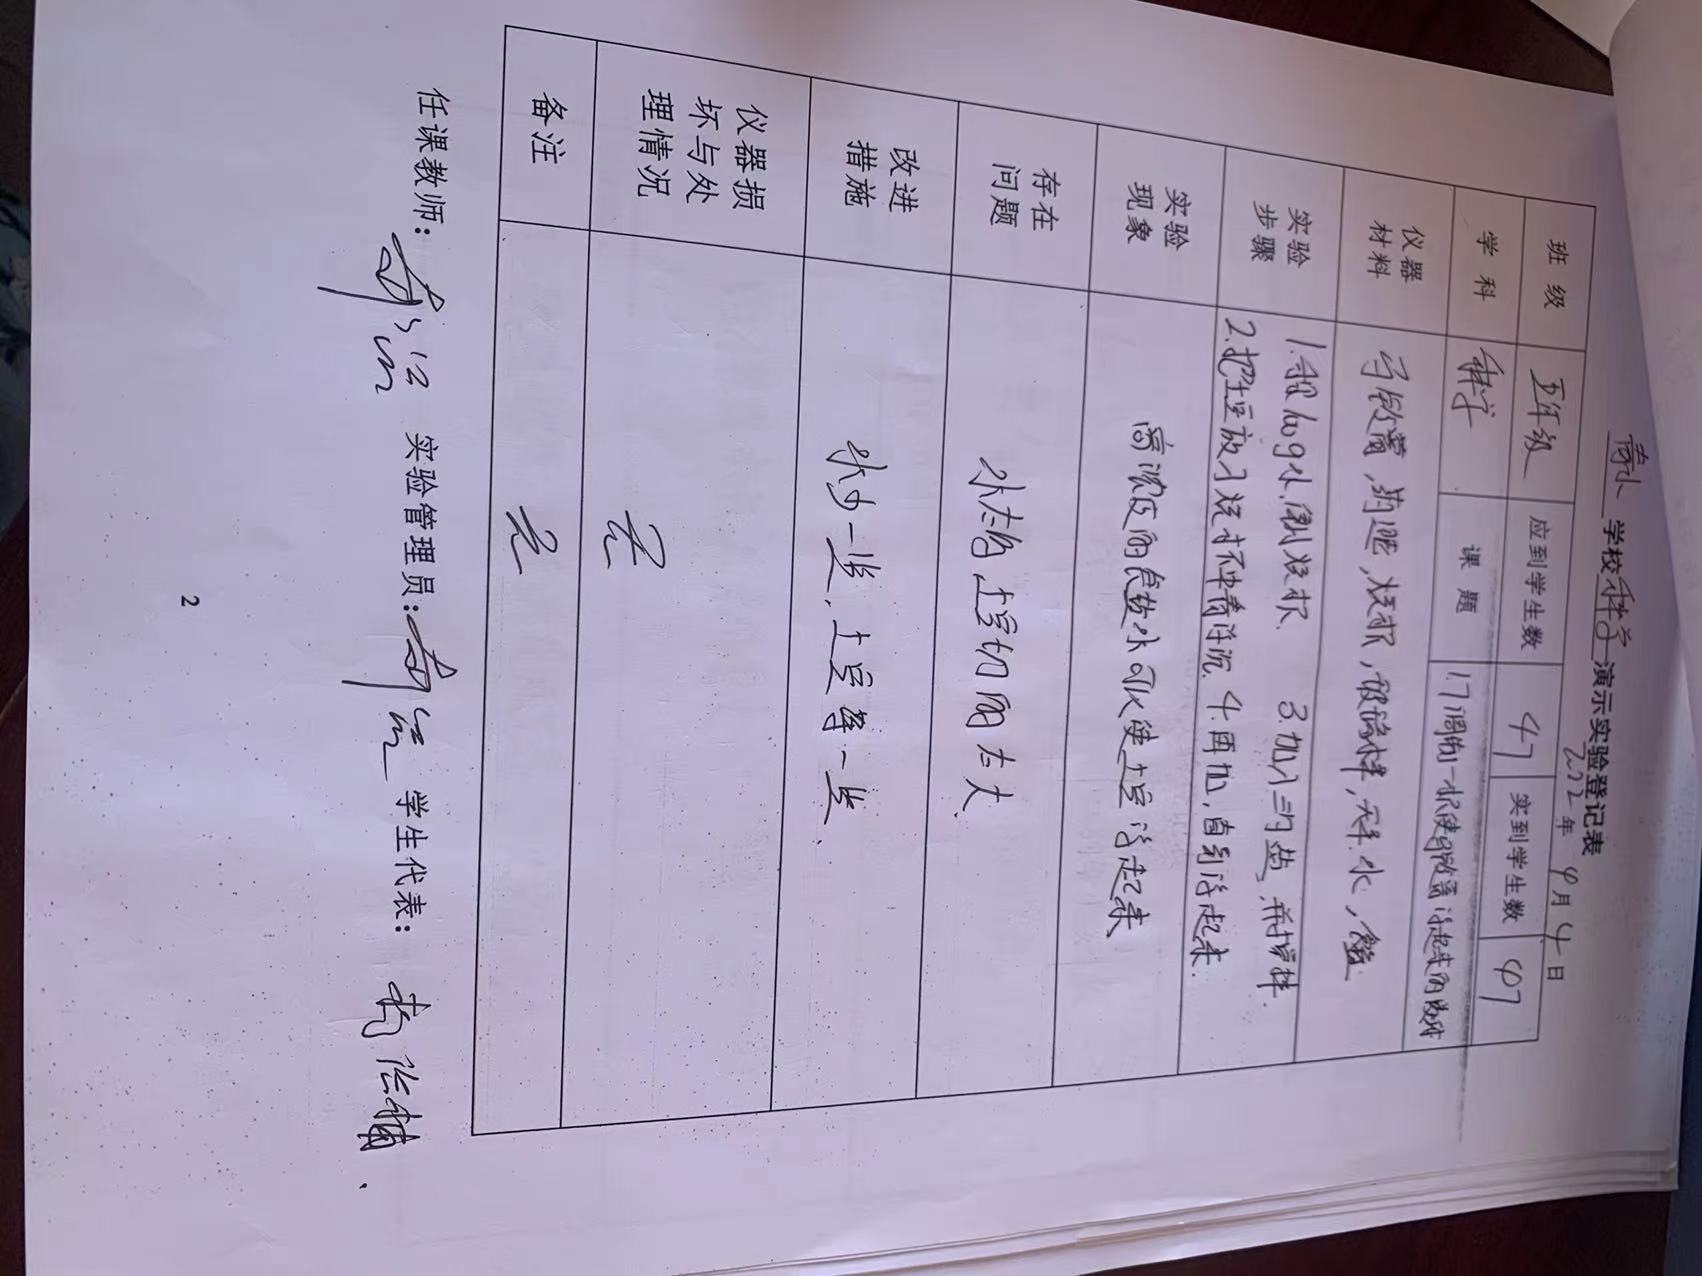 学校科学演示实验登记表
年4月4日
班级 五年级 应到学生数 47 实到学生数 47
学科 科学 课题
仪器材料 烧杯,玻璃棒,水,盐
实验步骤 1.和100g水,倒烧杯. 3.加入三勺盐,并搅拌.
2.把土豆放入烧杯中看浮沉. 4.再加,直到浮起来.
实验现象 高浓度的食盐水可以使土豆浮起来
存在问题 水太满 土豆切的太大
改进措施 水少一些,土豆薄一些
仪器损坏与处理情况 无
备注 无
任课教师: 实验管理员: 学生代表:
2